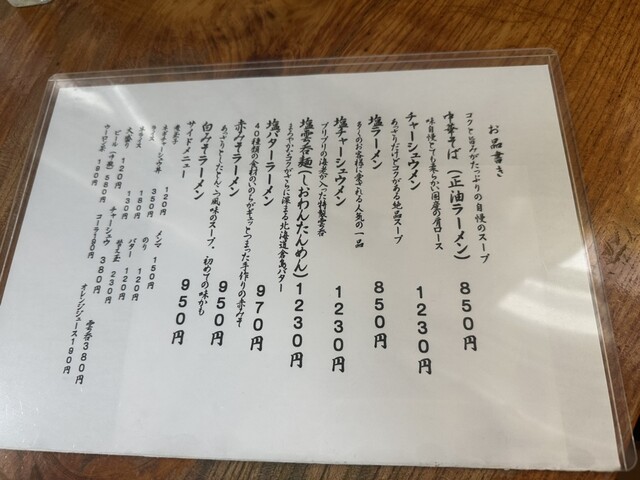 お品書き
コクと旨みがたっぷりの自慢のスープ
中華そば（正油ラーメン） 850円
味自慢とても柔らか、国産の肩ロース
チャーシュウメン 1230円
あっさりだけどコクがある絶品スープ
塩ラーメン 850円
多くのお客様に愛される人気の一品
塩チャーシュウメン 1230円
プリプリの海老が入った特製雲呑
塩雲呑麺（しおわんたんめん） 1230円
まろやかなコクがさらに深まる北海道倉島バター
塩バターラーメン 970円
40種類の食材のいのちがギュッとつまった手作りの赤みそ
赤みそラーメン 950円
あっさりとしたとんこつ風味のスープ。初めての味かも
白みそラーメン 950円
サイドメニュー
煮玉子 120円 メンマ 150円
チャーシュウ丼 350円 のり 120円
180円 バター 120円
大盛り 130円 替え玉 230円
120円 チャーシュウ 380円 雲呑 380円
ビール（中瓶） 580円 コーラ 190円 オレンジジュース 190円
ウーロン茶 180円